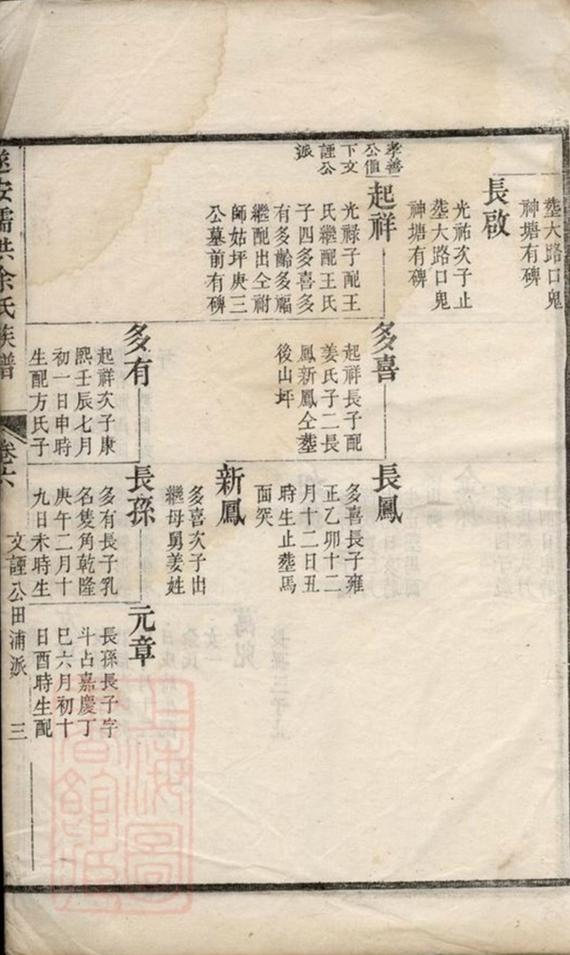 塟大路口鬼
神塘有碑
長啟
光祐次子止
塟大路口鬼
神塘有碑
孝善
公值
下文
謹公
派
起祥
光祿子配王
氏繼配王氏
子四多喜多
有多齡多福
繼配出仝祔
師姑坪庚三
公墓前有碑
多喜
起祥長子配
姜氏子二長
鳳新鳳仝塟
後山坪
多有
起祥次子康
熙壬辰七月
初一日申時
生配方氏子
長鳳
多喜長子雍
正乙卯十二
月十二日丑
時生止塟馬
面突
新鳳
多喜次子出
繼母舅姜姓
長孫
多有長子乳
名隻角乾隆
庚午二月十
九日未時生
元章
長孫長子字
斗占嘉慶丁
巳六月初十
日酉時生配
遂安儒洪余氏族譜
卷六
文謹公田浦派
三